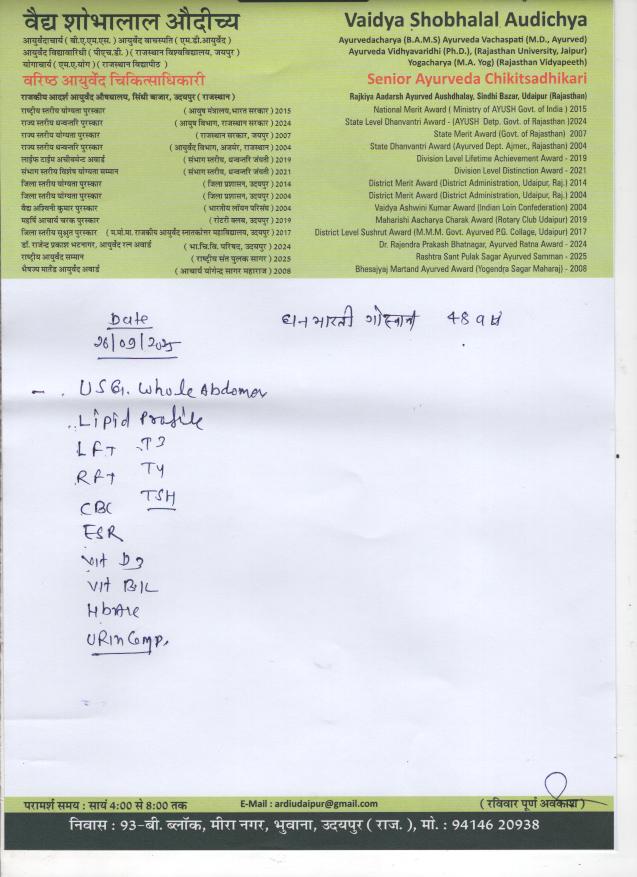 वैद्य शोभालाल औदीच्य
आयुर्वेदाचार्य ( बी.ए.एम.एस. ) आयुर्वेद वाचस्पति ( एम.डी.आयुर्वेद )
आयुर्वेद विद्यावारिधी ( पीएच.डी. ) ( राजस्थान विश्वविद्यालय, जयपुर )
योगाचार्य ( एम.ए.योग ) ( राजस्थान विद्यापीठ )
वरिष्ठ आयुर्वेद चिकित्साधिकारी
राजकीय आदर्श आयुर्वेद औषधालय, सिंधी बाजार, उदयपुर ( राजस्थान )
राष्ट्रीय स्तरीय योग्यता पुरस्कार ( आयुष मंत्रालय,भारत सरकार ) 2015
राज्य स्तरीय धन्वन्तरि पुरस्कार ( आयुष विभाग, राजस्थान सरकार ) 2024
राज्य स्तरीय योग्यता पुरस्कार ( राजस्थान सरकार, जयपुर ) 2007
राज्य स्तरीय धन्वन्तरि पुरस्कार ( आयुर्वेद विभाग, अजमेर, राजस्थान ) 2004
लाईफ टाईम अचीवमेन्ट अवार्ड ( संभाग स्तरीय, धन्वन्तरि जंयती ) 2019
संभाग स्तरीय विशेष योग्यता सम्मान ( संभाग स्तरीय, धन्वन्तरि जंयती ) 2021
जिला स्तरीय योग्यता पुरस्कार ( जिला प्रशासन, उदयपुर ) 2014
जिला स्तरीय योग्यता पुरस्कार ( जिला प्रशासन, उदयपुर ) 2004
वैद्य अश्विनी कुमार पुरस्कार ( भारतीय लॉयन परिसंघ ) 2004
महर्षि आचार्य चरक पुरस्कार ( रोटरी क्लब, उदयपुर ) 2019
जिला स्तरीय सुश्रुत पुरस्कार ( म.मो.मा. राजकीय आयुर्वेद स्नातकोत्तर महाविद्यालय, उदयपुर ) 2017
डॉ. राजेन्द्र प्रकाश भटनागर, आयुर्वेद रत्न अवार्ड ( भा.चि.वि. परिषद, उदयपुर ) 2024
राष्ट्रीय आयुर्वेद सम्मान ( राष्ट्रीय संत पुलक सागर ) 2025
भैषज्य मार्तंड आयुर्वेद अवार्ड ( आचार्य योगेन्द्र सागर महाराज ) 2008
Vaidya Shobhalal Audichya
Ayurvedacharya (B.A.M.S) Ayurveda Vachaspati (M.D., Ayurved)
Ayurveda Vidhyavaridhi (Ph.D.), (Rajasthan University, Jaipur)
Yogacharya (M.A. Yog) (Rajasthan Vidyapeeth)
Senior Ayurveda Chikitsadhikari
Rajkiya Aadarsh Ayurved Aushdhalay, Sindhi Bazar, Udaipur (Rajasthan)
National Merit Award ( Ministry of AYUSH Govt. of India ) 2015
State Level Dhanvantri Award - (AYUSH Detp. Govt. of Rajasthan )2024
State Merit Award (Govt. of Rajasthan) 2007
State Dhanvantri Award (Ayurved Dept. Ajmer., Rajasthan) 2004
Division Level Lifetime Achievement Award - 2019
Division Level Distinction Award - 2021
District Merit Award (District Administration, Udaipur, Raj.) 2014
District Merit Award (District Administration, Udaipur, Raj.) 2004
Vaidya Ashwini Kumar Award (Indian Loin Confederation) 2004
Maharishi Aacharya Charak Award (Rotary Club Udaipur) 2019
District Level Sushrut Award (M.M.M. Govt. Ayurved P.G. Collage, Udaipur) 2017
Dr. Rajendra Prakash Bhatnagar, Ayurved Ratna Award - 2024
Rashtra Sant Pulak Sagar Ayurved Samman - 2025
Bhesajyaj Martand Ayurved Award (Yogendra Sagar Maharaj) - 2008
Date
26/09/2025
भारती गोस्वामी 48 वर्ष
USG. Whole Abdomen
Lipid Profile
LFT T3
RFT T4
CBC TSH
ESR
Vit D3
Vit B12
HbA1c
Urin Comp.
परामर्श समय : सायं 4:00 से 8:00 तक E-Mail : ardiudaipur@gmail.com ( रविवार पूर्ण अवकाश )
निवास : 93-बी. ब्लॉक, मीरा नगर, भुवाना, उदयपुर ( राज. ), मो. : 94146 20938